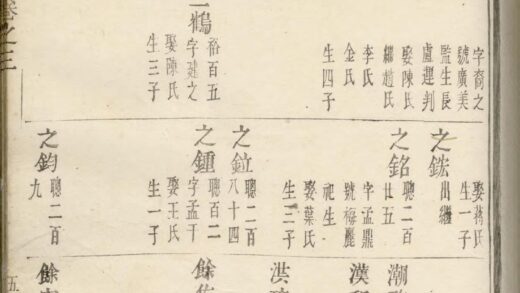 字裔之
號廣美
監生長
盧運判
娶陳氏
繼趙氏
李氏
金氏
生四子
鳴
裕百五
字建之
娶陳氏
生三子
卷之三
之鋐
娶蔣氏
生一子
出繼
之銘
聰二百
廿五
字孟鼎
號梅麗
祀生
娶葉氏
生三子
之鉝
聰二百
八十四
之鍾
聰百二
字孟干
娶王氏
生一子
之鈞
聰二百
九
潮
漢
洪
餘
餘
五